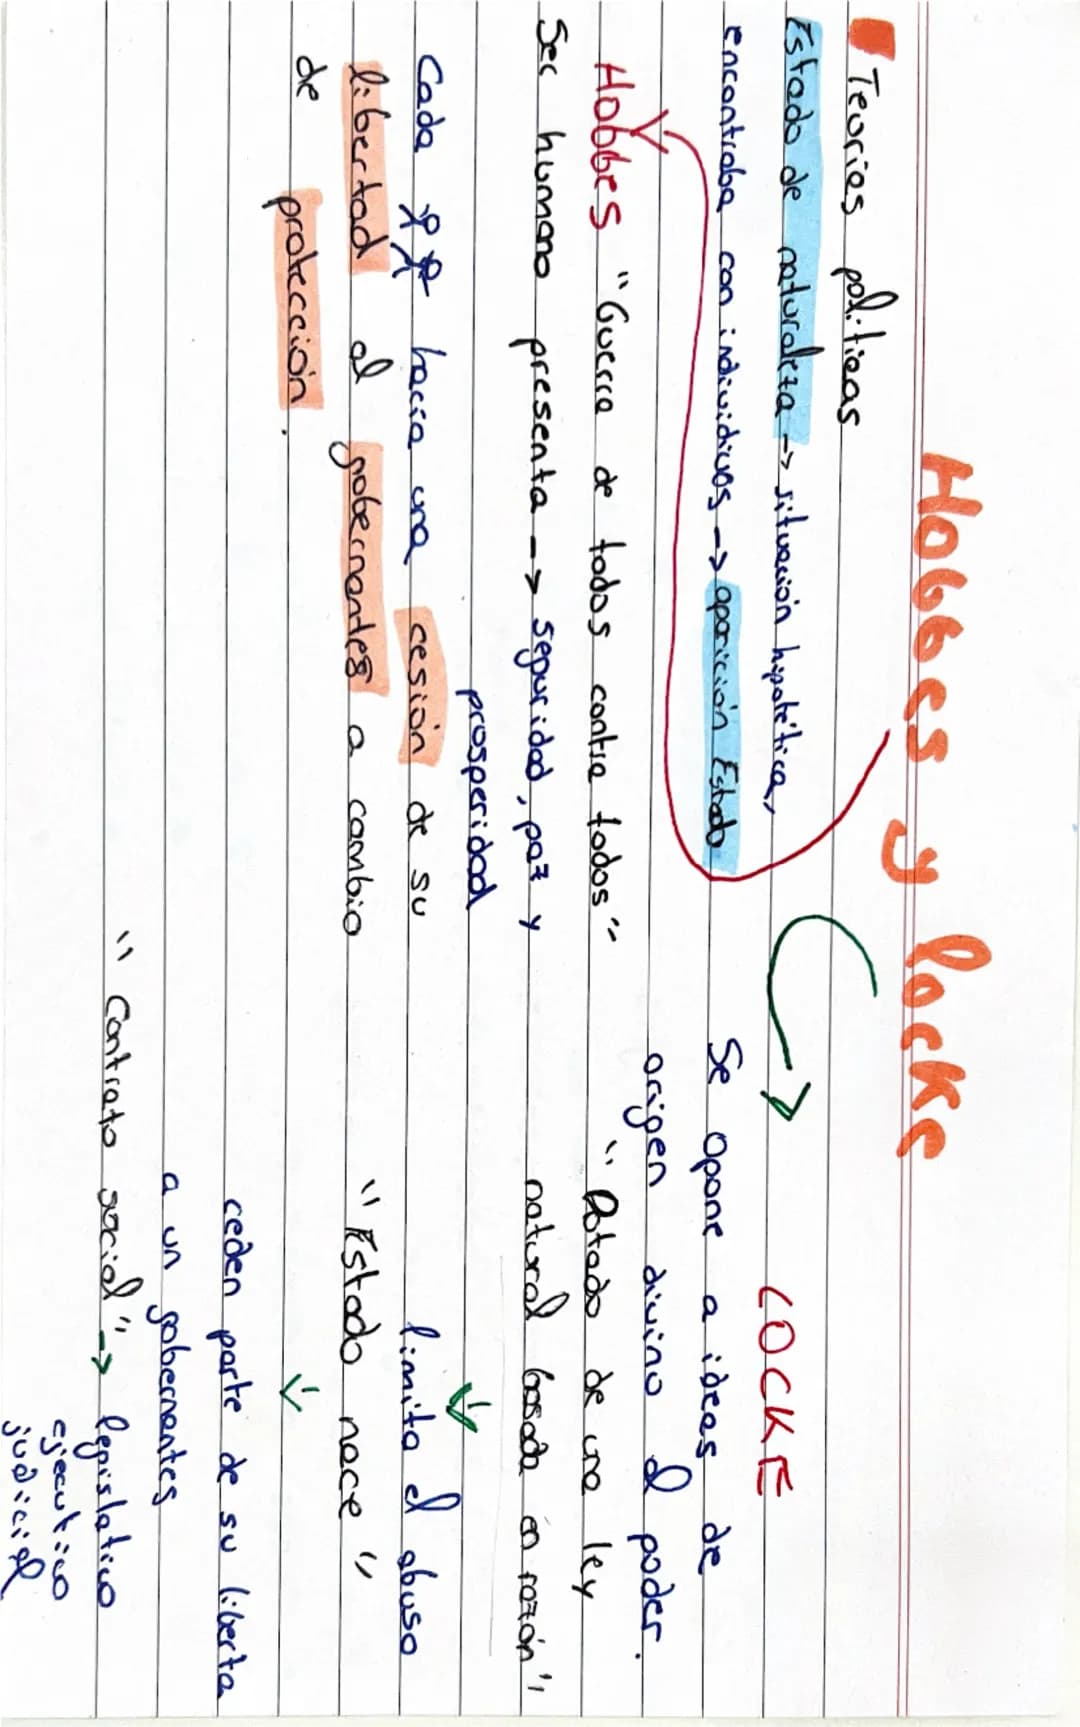 Hobbes y locke
Teorías políticas
Estado de naturaleza -> situación hipotética,
encontraba con individuos -> aparición Estado
Hobbes "Guerra de todos contra todos"
Ser humano presenta -> seguridad, paz y
prosperidad
Cada hacía una cesión de su
libertad al gobernantes a cambio
de protección.
LOCKE
Se opone a ideas de
origen divino el poder.
"Dotado de una ley
natural basada en razón"
limita el abuso
"Estado nace"
ceden parte de su liberta
a un gobernantes
"Contrato social" -> legislativo
ejecutivo
judicial